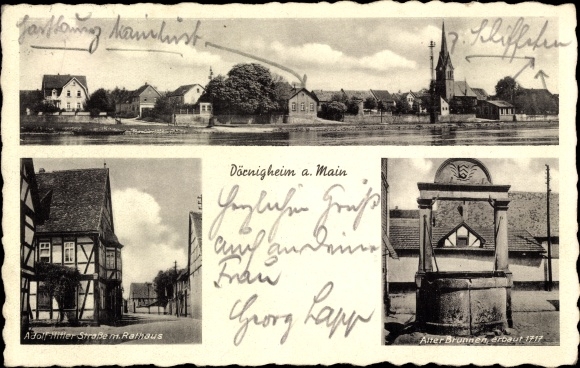 Gasthaus Mainlust
z. Schiffchen
Dörnigheim a. Main
Herzlichen Gruß
auch an Deine
Frau
Georg Lapp
Adolf-Hitler-Straße m. Rathaus
Alter Brunnen, erbaut 1717